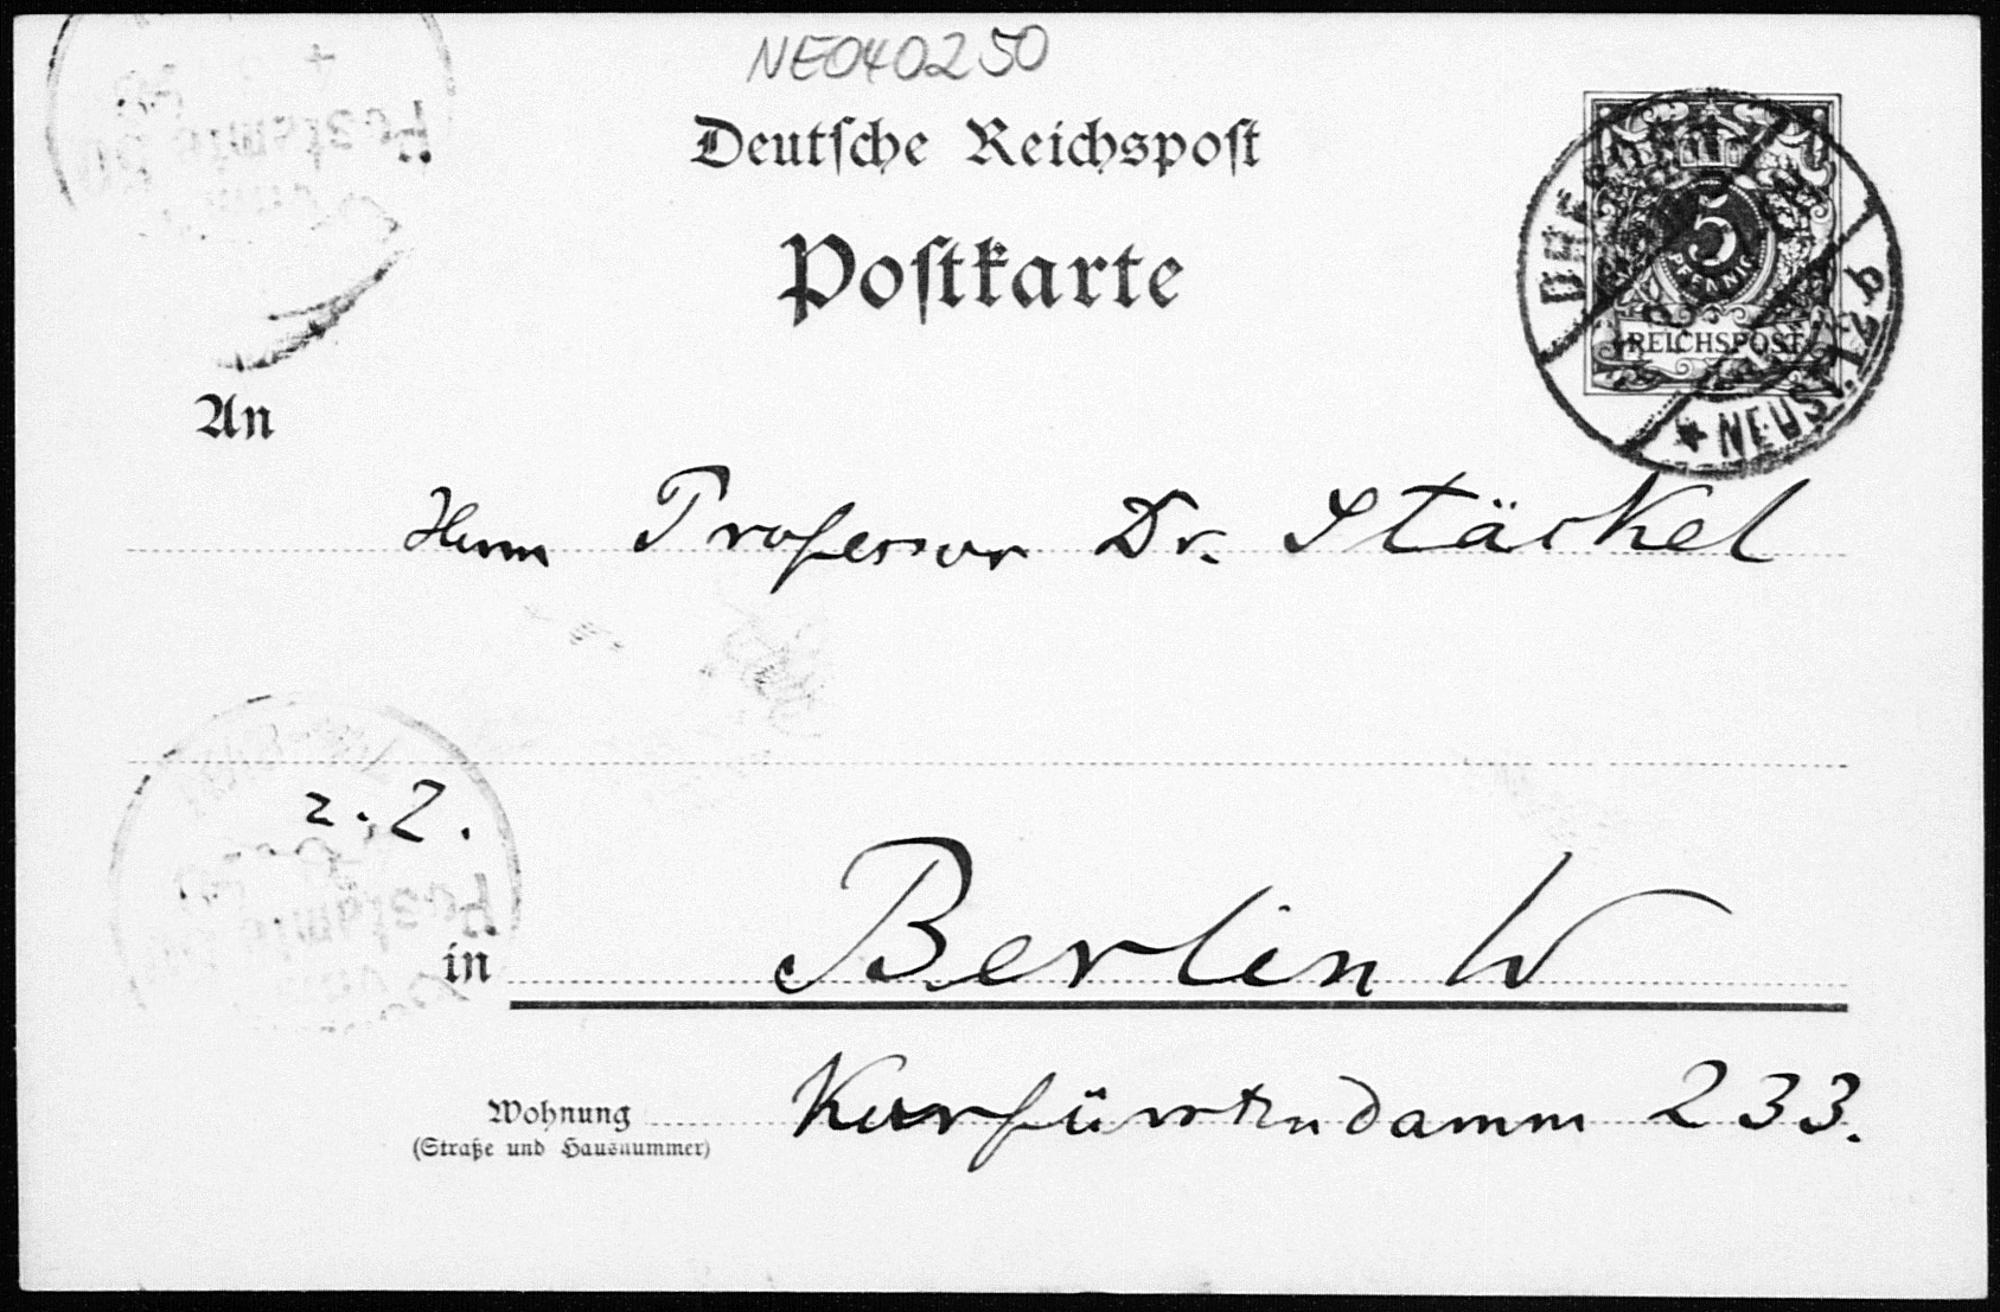 NE040250
Deutsche Reichspost
Postkarte
5
PFENNIG
REICHSPOST
DRESDEN
* NEUST.
An
Herrn Professor Dr. Stäckel
z. Z.
in Berlin W
Wohnung Kurfürstendamm 233.
(Straße und Hausnummer)